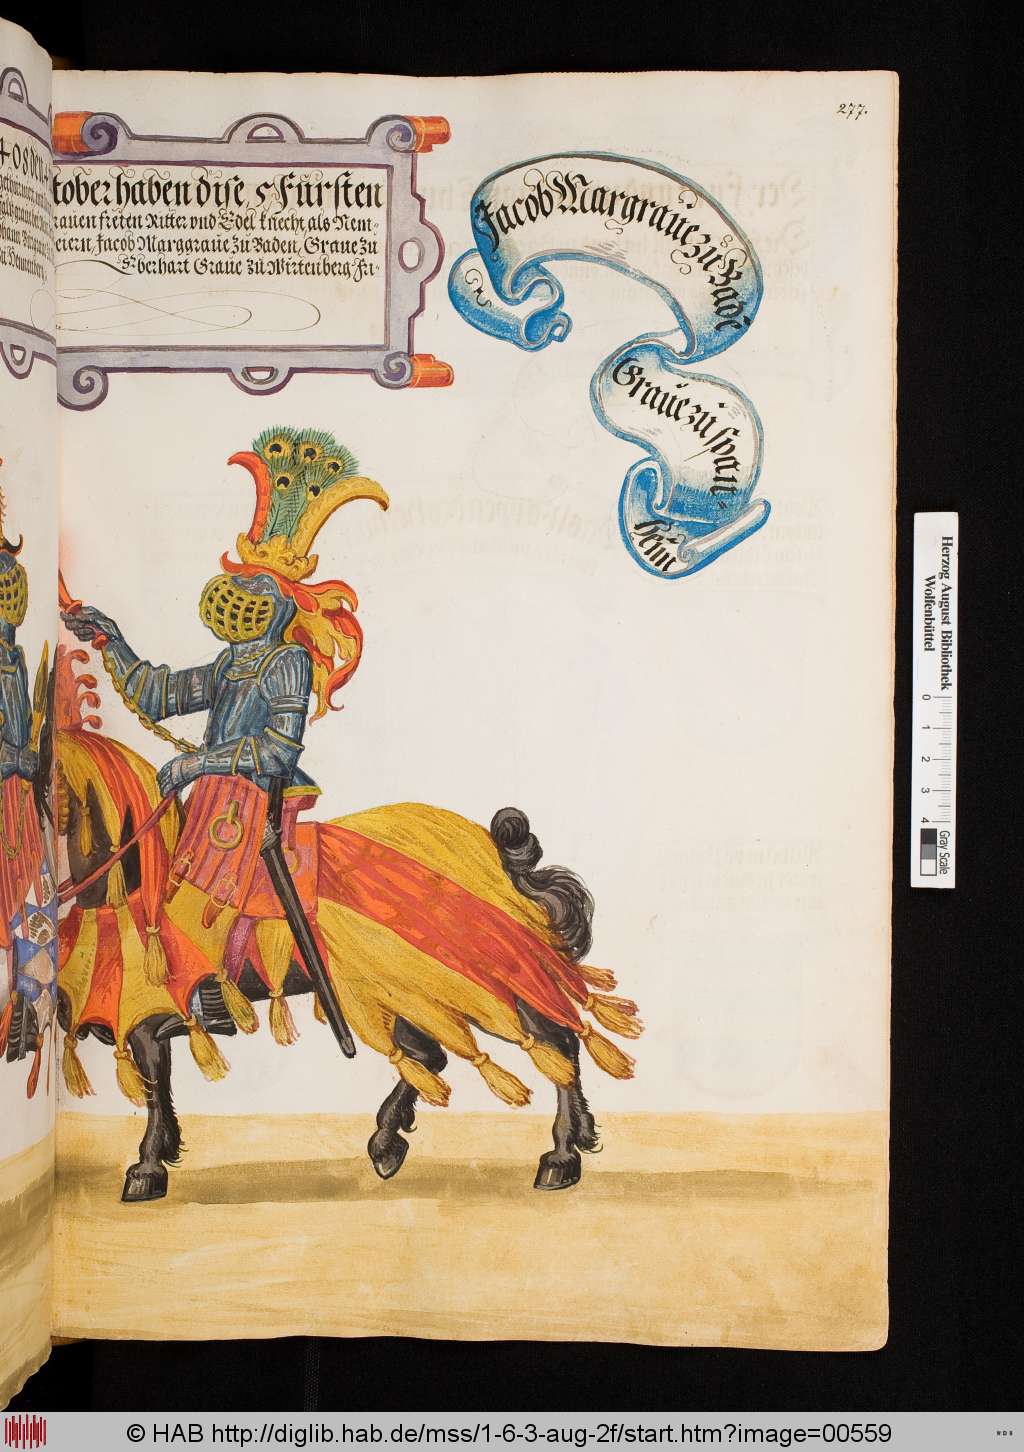 277.
tober haben dise 5 Fürsten
rauen freien Ritter vnd Edel knecht als Nem-
Jacob Marggraue zu Baden, Graue zu
Eberhart Graue zu Wirtenberg. Fri-
Jacob Margraue zu Bade
Graue zu Span
heim
Herzog August Bibliothek
Wolfenbüttel
0 1 2 3 4
Gray Scale
© HAB http://diglib.hab.de/mss/1-6-3-aug-2f/start.htm?image=00559